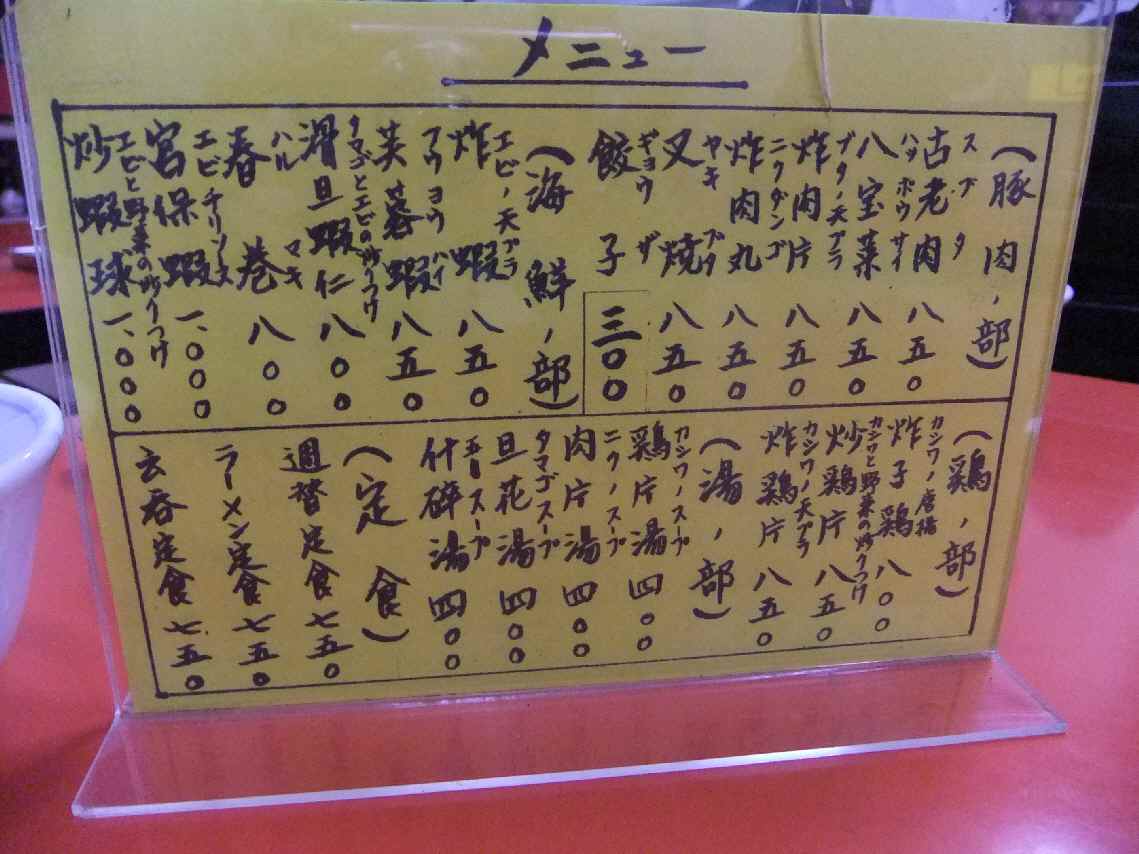 メニュー
(豚肉ノ部)
スブタ
古老肉 八五〇
ハッポウサイ
八宝菜 八五〇
ブタノ天プラ
炸肉片 八五〇
ニクダンゴ
炸肉丸 八五〇
ヤキブタ
叉焼 八五〇
ギョウザ
餃子 三〇〇
(海鮮ノ部)
エビノ天プラ
炸蝦 八五〇
フウヨウハイ
芙蓉蝦 八五〇
タマゴとエビの炒りつけ
滑旦蝦仁 八〇〇
ハルマキ
春巻 八〇〇
エビチリソース
宮保蝦 一、〇〇〇
エビと野菜の炒りつけ
炒蝦球 一、〇〇〇
(鶏ノ部)
カシワノ唐揚
炸子鶏 八〇〇
カシワと野菜の炒りつけ
炒鶏片 八五〇
カシワノ天プラ
炸鶏片 八五〇
(湯ノ部)
カシワノスープ
鶏片湯 四〇〇
ニクノスープ
肉片湯 四〇〇
タマゴスープ
旦花湯 四〇〇
スープ
什碎湯 四〇〇
(定食)
週替定食 七五〇
ラーメン定食 七五〇
云呑定食 七五〇